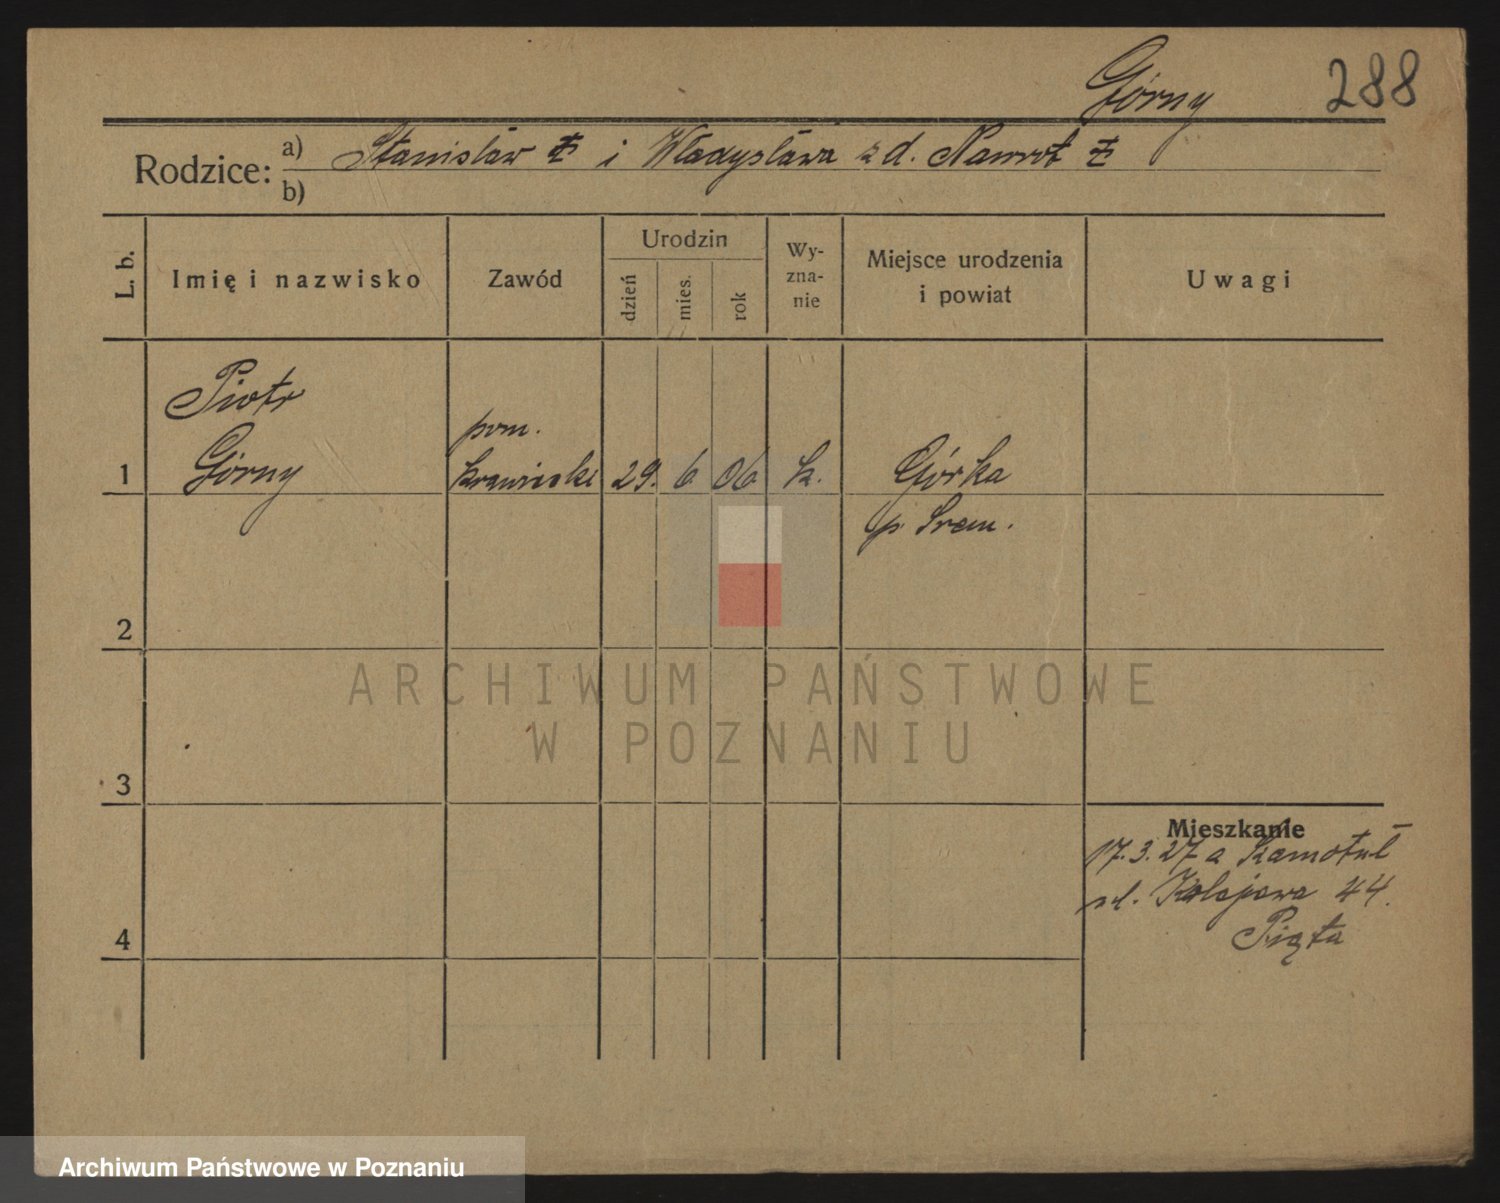 Górny 288
Rodzice: a) Stanisław ‡ i Władysława z d. Nawrot ‡
b)
L. b. Imię i nazwisko Zawód Urodzin dzień mies. rok Wy-zna-nie Miejsce urodzenia i powiat Uwagi
Piotr
pom.
1 Górny krawiecki 29. 6 06 k. Górka
p. Śrem.
2
ARCHIWUM PAŃSTWOWE
W POZNANIU
3
Mieszkanie
17.3.27 a Szamotuł
ul. Kolejowa 44.
4 Piąta
Archiwum Państwowe w Poznaniu